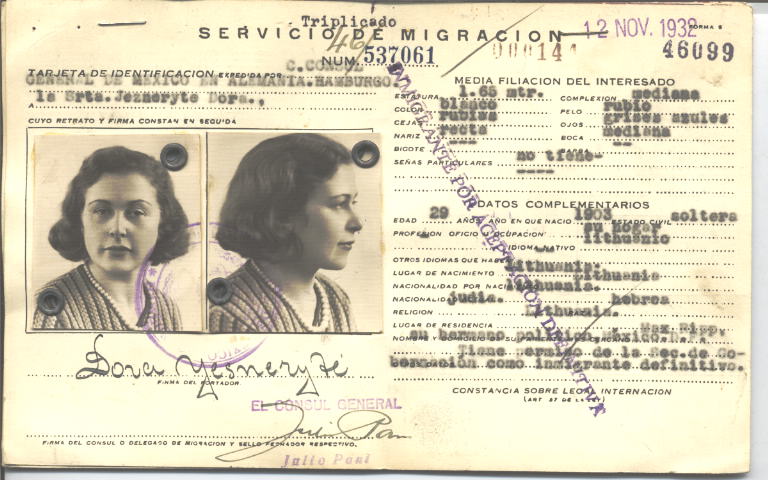 Triplicado
SERVICIO DE MIGRACION
12 NOV. 1932
FORMA 5
46
NUM. 537061
000144
46099
TARJETA DE IDENTIFICACION EXPEDIDA POR C. CONSUL
GENERAL DE MEXICO EN ALEMANIA. HAMBURGO.
A la Srta. Jezneryte Dora.,
CUYO RETRATO Y FIRMA CONSTAN EN SEGUIDA
Dora Yesneryte
FIRMA DEL PORTADOR.
EL CONSUL GENERAL
FIRMA DEL CONSUL O DELEGADO DE MIGRACION Y SELLO FECHADOR RESPECTIVO.
Julio Pani
MEDIA FILIACION DEL INTERESADO
ESTATURA 1.65 mtr. COMPLEXION mediana
COLOR blanco PELO rubio
CEJAS rubias OJOS grises azules
NARIZ recta BOCA mediana
BIGOTE ---- --
SEÑAS PARTICULARES no tiene-
----
DATOS COMPLEMENTARIOS
EDAD 29 AÑOS, AÑO EN QUE NACIO 1903 ESTADO CIVIL soltera
PROFESION OFICIO U OCUPACION su hogar
IDIOMA NATIVO lithuanio
OTROS IDIOMAS QUE HABLA --
LUGAR DE NACIMIENTO Lithuania.
NACIONALIDAD POR NACIMIENTO Lithuania
NACIONALIDAD Lithuania.
RELIGION judia. hebrea
LUGAR DE RESIDENCIA Lithuania.
NOMBRE Y DOMICILIO DE SU su hermano politico Max Ripp, Mexico
Tiene permiso de la Sec. de Go-
bernación como inmigrante definitivo.
CONSTANCIA SOBRE LEGAL INTERNACION
(ART. 57 DE LA LEY)
INMIGRANTE POR ACEPTACION DEFINITIVA